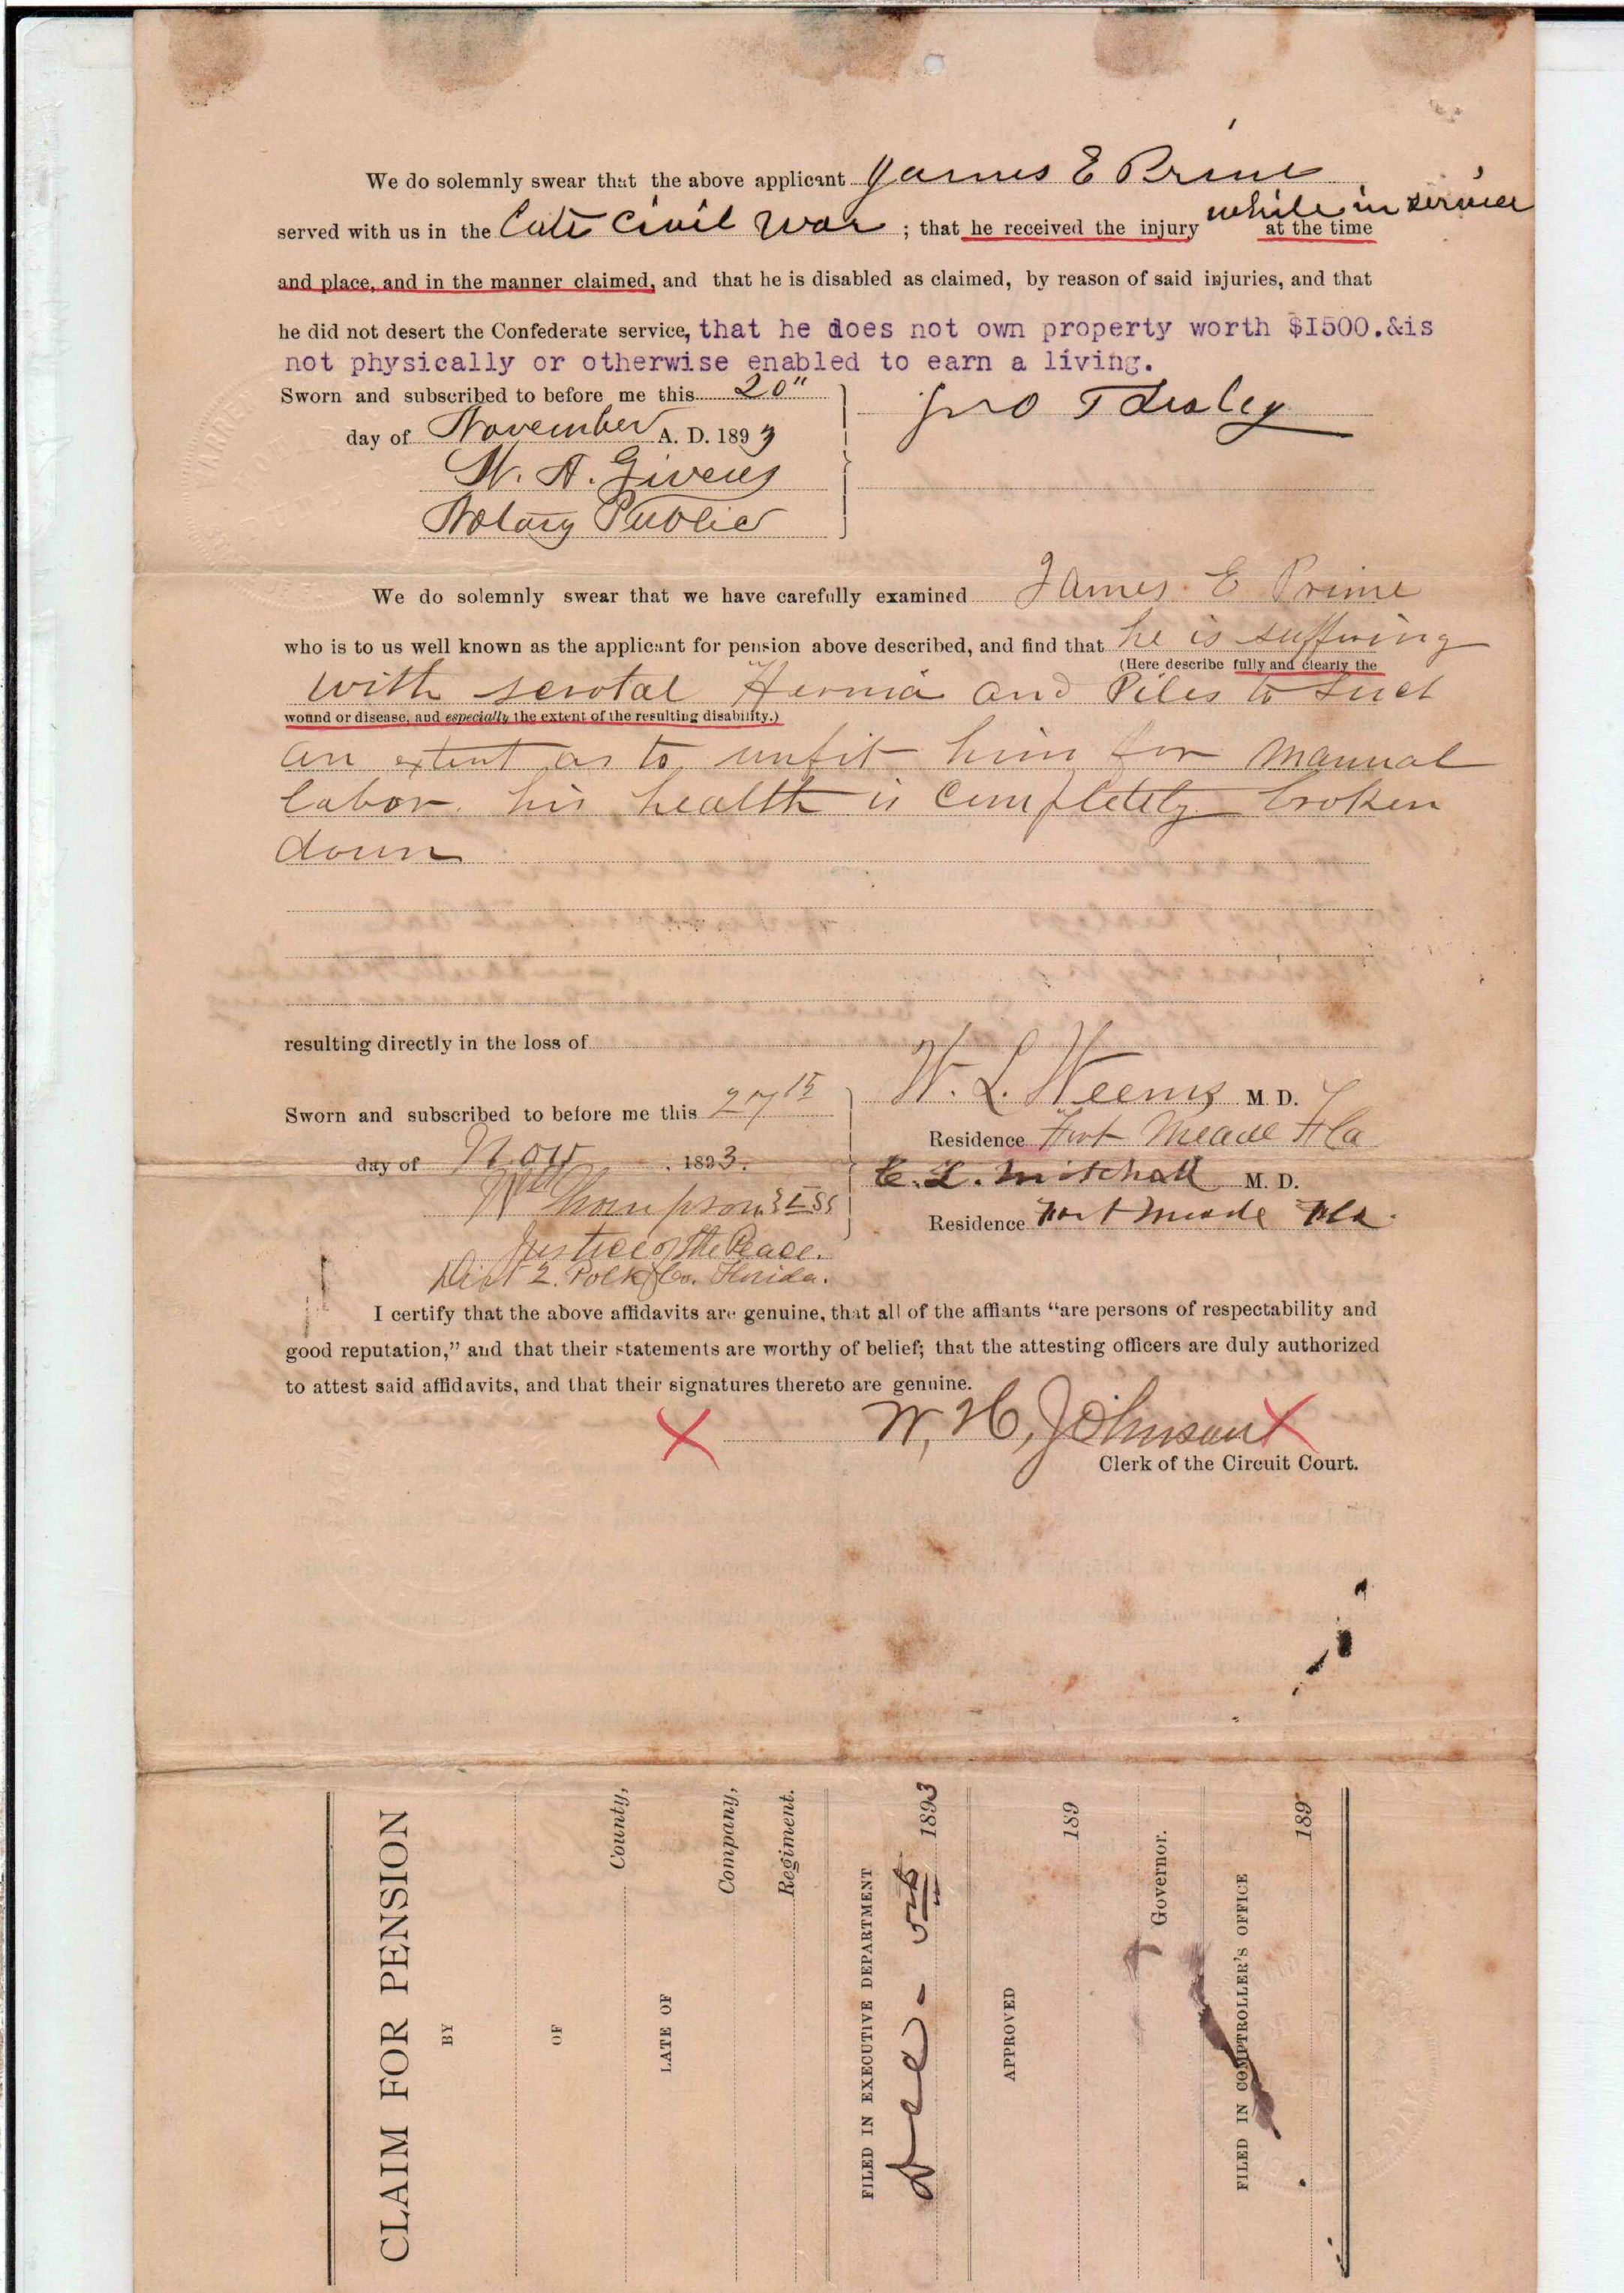 We do solemnly swear that the above applicant James E Prine
served with us in the late Civil War ; that he received the injury while in service at the time
and place, and in the manner claimed, and that he is disabled as claimed, by reason of said injuries, and that
he did not desert the Confederate service, that he does not own property worth $I500.&is
not physically or otherwise enabled to earn a living.
Sworn and subscribed to before me this 20"
day of November A. D. 1893
Jno T
W. A. Givens
Notary Public
We do solemnly swear that we have carefully examined James E Prine
who is to us well known as the applicant for pension above described, and find that he is suffering
(Here describe fully and clearly the
with scrotal Hernia and Piles to such
wound or disease, and especially the extent of the resulting disability.)
an extent as to unfit him for manual
labor. his health is completely broken
down
resulting directly in the loss of
W. L. Weems M. D.
Sworn and subscribed to before me this 27
Residence Fort Meade Fla
day of Nov. 1893.
C. L. Mitchell M. D.
Thompson
Residence Fort Meade Fla.
Justice of the Peace.
Dist 2. Polk Co. Florida.
I certify that the above affidavits are genuine, that all of the affiants “are persons of respectability and
good reputation,” and that their statements are worthy of belief; that the attesting officers are duly authorized
to attest said affidavits, and that their signatures thereto are genuine.
X W. H. Johnson X
Clerk of the Circuit Court.
CLAIM FOR PENSION
BY
OF
County,
LATE OF
Company,
Regiment.
FILED IN EXECUTIVE DEPARTMENT
Dec - 5th 1893
APPROVED
189
Governor.
FILED IN COMPTROLLER'S OFFICE
189